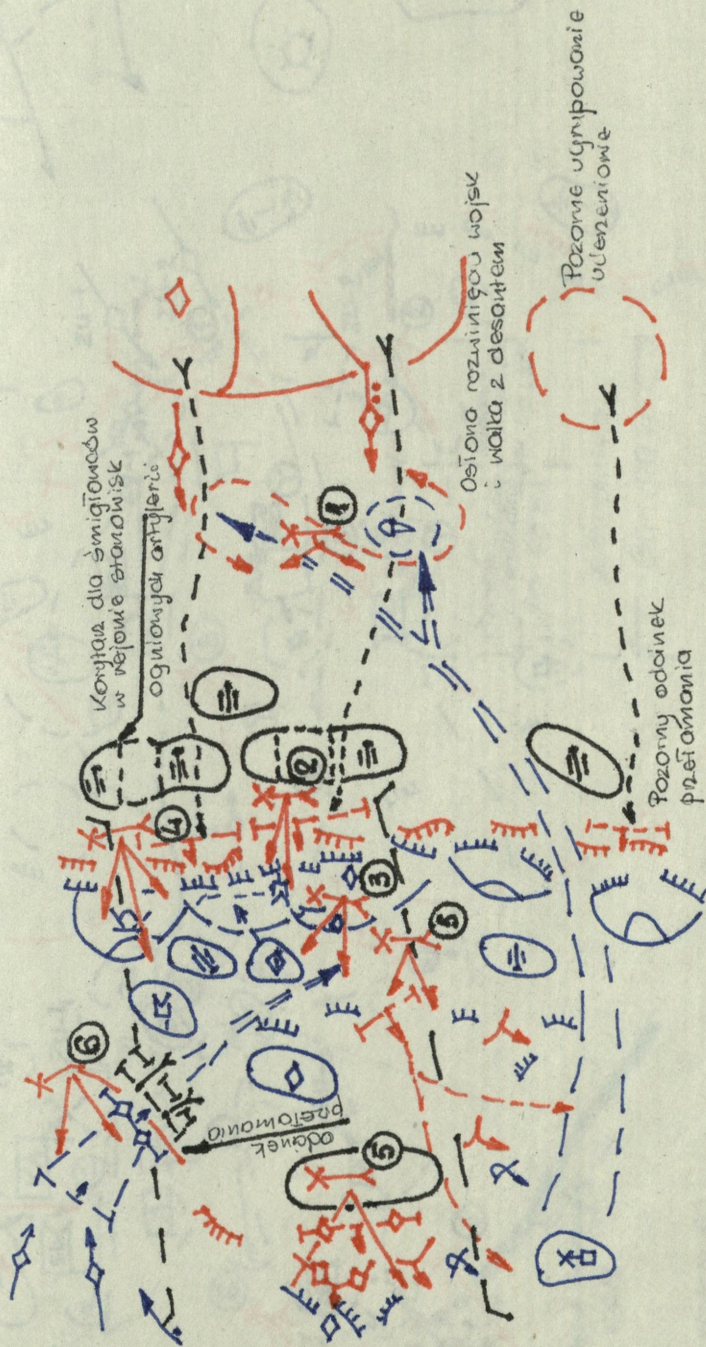 Korytarz dla śmigłowców
w rejonie stanowisk
ogniowych artylerii
Osłona rozwinięcia wojsk
i walka z desantem
Pozorne ugrupowanie
uderzeniowe
Pozorny odcinek
przełamania
odcinek
przełamania
1
2
3
4
5
5
6